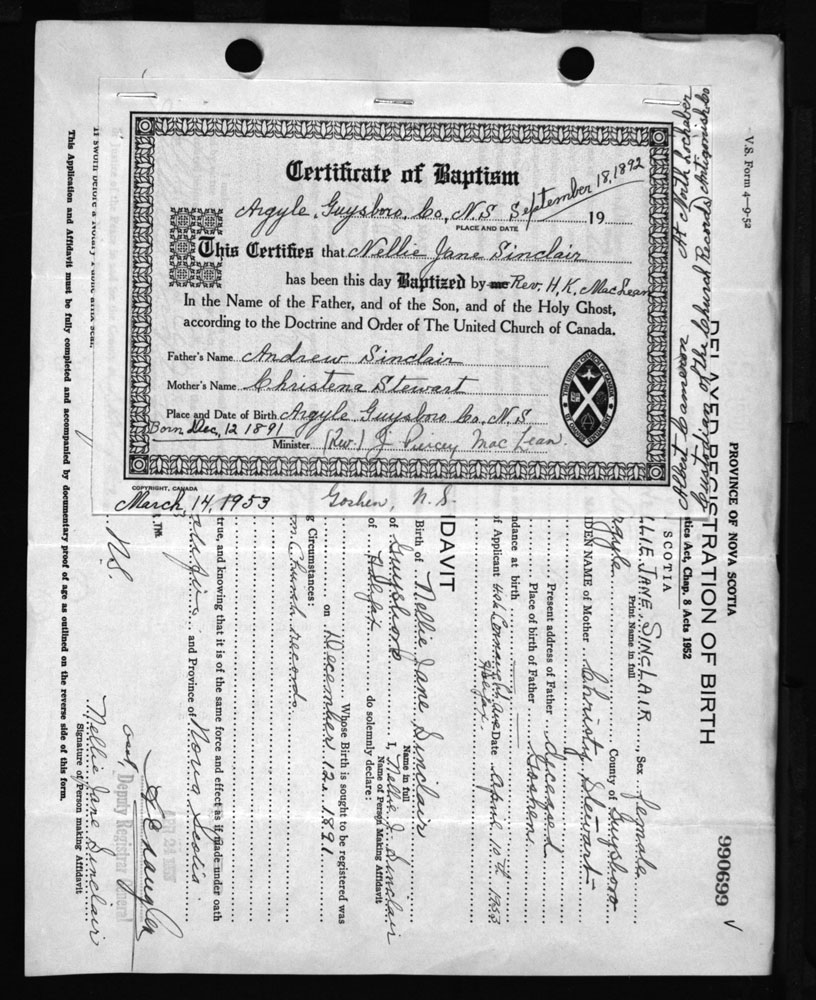 Certificate of Baptism
Argyle, Guysboro, Co, N.S September 18, 1892 19
PLACE AND DATE
This Certifies that Nellie Jane Sinclair
has been this day Baptized by me Rev. H. K. MacLean
In the Name of the Father, and of the Son, and of the Holy Ghost,
according to the Doctrine and Order of The United Church of Canada.
Father's Name Andrew Sinclair
Mother's Name Christena Stewart
Place and Date of Birth Argyle Guysboro Co. N.S
Born Dec, 12 1891
Minister (Rev.) J Percey MacLean
COPYRIGHT, CANADA
March, 14, 1953 Goshen, N.S.
V.S. Form 4—9-52
990699
PROVINCE OF NOVA SCOTIA
DELAYED REGISTRATION OF BIRTH
tics Act, Chap. 8 Acts 1952
SCOTIA
LLIE JANE SINCLAIR, Sex female
Print Name in full
County of Guysboro
IDEN NAME of Mother Christy Stewart
Present address of Father deceased
Place of birth of Father Goshen
ndance at birth
of Applicant Date April 10th 1953
Halifax
IDAVIT
Birth of Nellie Jane Sinclair
Name in full
of Guysboro I, Nellie J. Sinclair
Name of Person Making Affidavit
of Halifax do solemnly declare:
Whose Birth is sought to be registered was
on December 12, 1891
g Circumstances:
m Church records
true, and knowing that it is of the same force and effect as if made under oath
and Province of Nova Scotia
Deputy Registrar General
N.S.
Nellie Jane Sinclair
Signature of Person making Affidavit
If sworn before a Notary Public affix seal.
This Application and Affidavit must be fully completed and accompanied by documentary proof of age as outlined on the reverse side of this form.